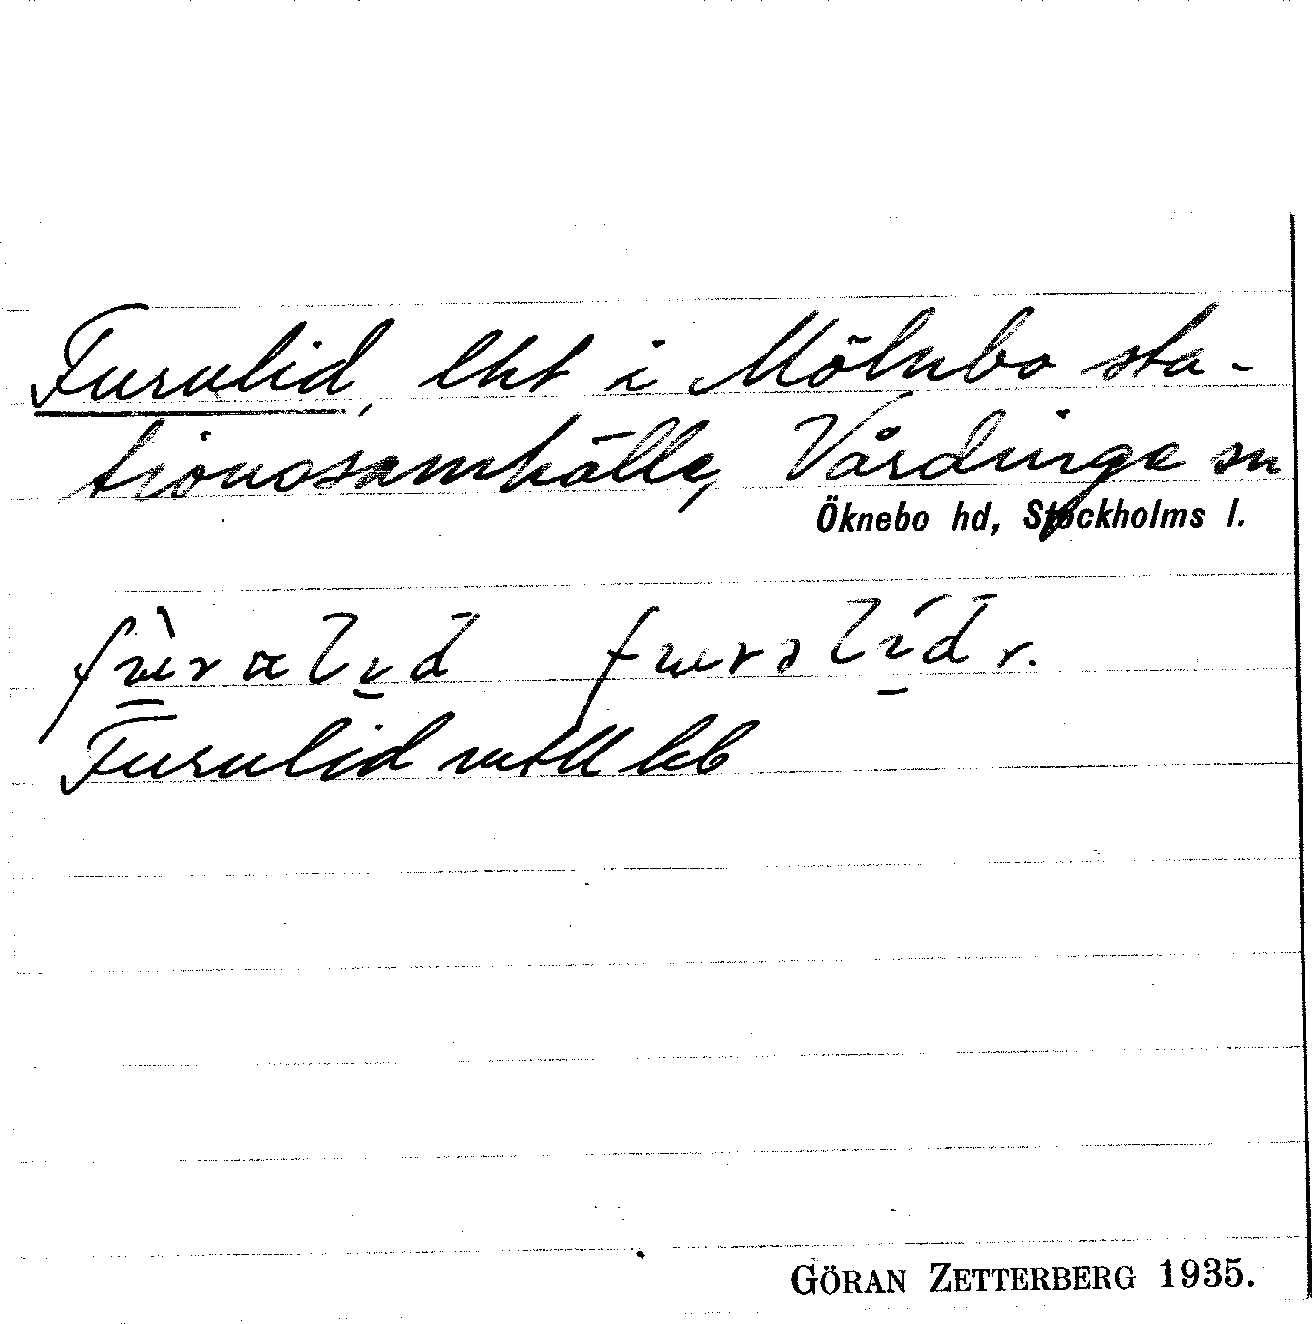 Furulid, lht i Mölnbo sta-
tionssamhälle, Vårdinge sn
Öknebo hd, Stockholms l.
Furulid mtll kb
GÖRAN ZETTERBERG 1935.